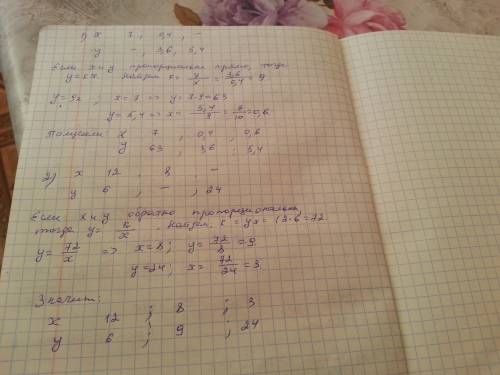 1) x 7, 0,4, –
y –, 3,6, 5,4
Если x и y пропорциональны прямо, тогда
y=kx. Найдём k= y/x = 3,6/0,4 = 9
y=9x, x=7 => y=7·9=63
y=5,4 => x= 5,4/9 = 6/10 =0,6
x 7, 0,4, 0,6
y 63, 3,6, 5,4
2) x 12 8 –
y 6, –, 24
Если x и y обратно пропорциональны,
тогда y= k/x. Найдём, k = yx = 12·6=72.
y= 72/x => x=8; y= 72/8 =9
y=24, x= 72/24 =3
Значит:
x 12 ; 8 ; 3
y 6 ; 9 ; 24